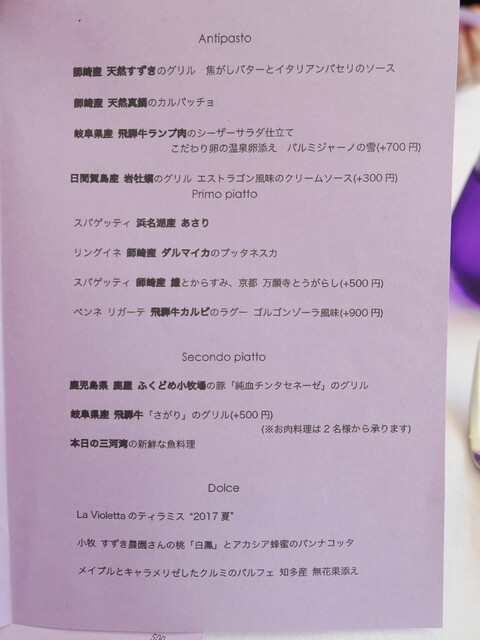 Antipasto
師崎産 天然すずきのグリル 焦がしバターとイタリアンパセリのソース
師崎産 天然真鯛のカルパッチョ
岐阜県産 飛騨牛ランプ肉のシーザーサラダ仕立て
こだわり卵の温泉卵添え パルミジャーノの雪(+700円)
日間賀島産 岩牡蠣のグリル エストラゴン風味のクリームソース(+300円)
Primo piatto
スパゲッティ 浜名湖産 あさり
リングイネ 師崎産 ダルマイカのプッタネスカ
スパゲッティ 師崎産 鱧とからすみ、京都 万願寺とうがらし(+500円)
ペンネ リガーテ 飛騨牛カルビのラグー ゴルゴンゾーラ風味(+900円)
Secondo piatto
鹿児島県 鹿屋 ふくどめ小牧場の豚「純血チンタセネーゼ」のグリル
岐阜県産 飛騨牛「さがり」のグリル(+500円)
(※お肉料理は2名様から承ります)
本日の三河湾の新鮮な魚料理
Dolce
La Violettaのティラミス "2017夏"
小牧 すずき農園さんの桃「白鳳」とアカシア蜂蜜のパンナコッタ
メイプルとキャラメリゼしたクルミのパルフェ 知多産 無花果添え
500